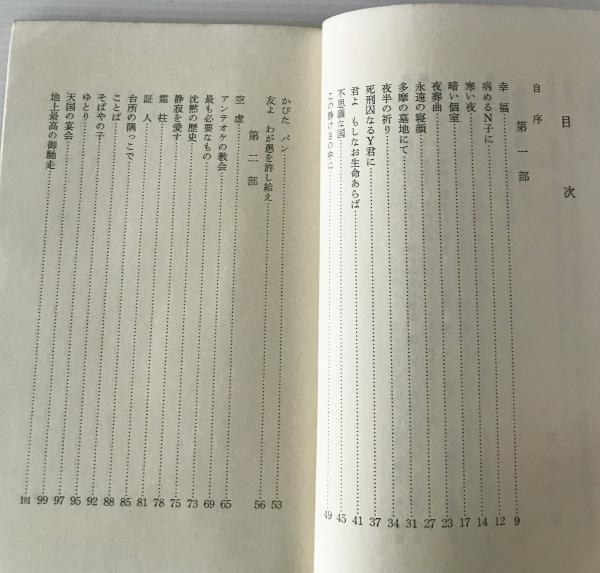 目次
自序
第一部
幸福……9
病めるN子に……12
寒い夜……14
暗い個室……17
夜葬曲……23
永遠の寝顔……27
多摩の墓地にて……31
夜半の祈り……34
死刑囚なるY君に……37
君よ もしなお生命あらば……41
不思議な国……45
この静けさの中に……49
かびた パン……53
友よ わが愚を許し給え……56
第二部
空虚……65
アンテオケの教会……69
最も必要なもの……73
沈黙の歴史……75
静寂を愛す……78
霜柱……81
証人……85
台所の隅っこで……88
ことば……92
そばやの子……95
ゆとり……97
天国の宴会……99
地上最高の御馳走……101